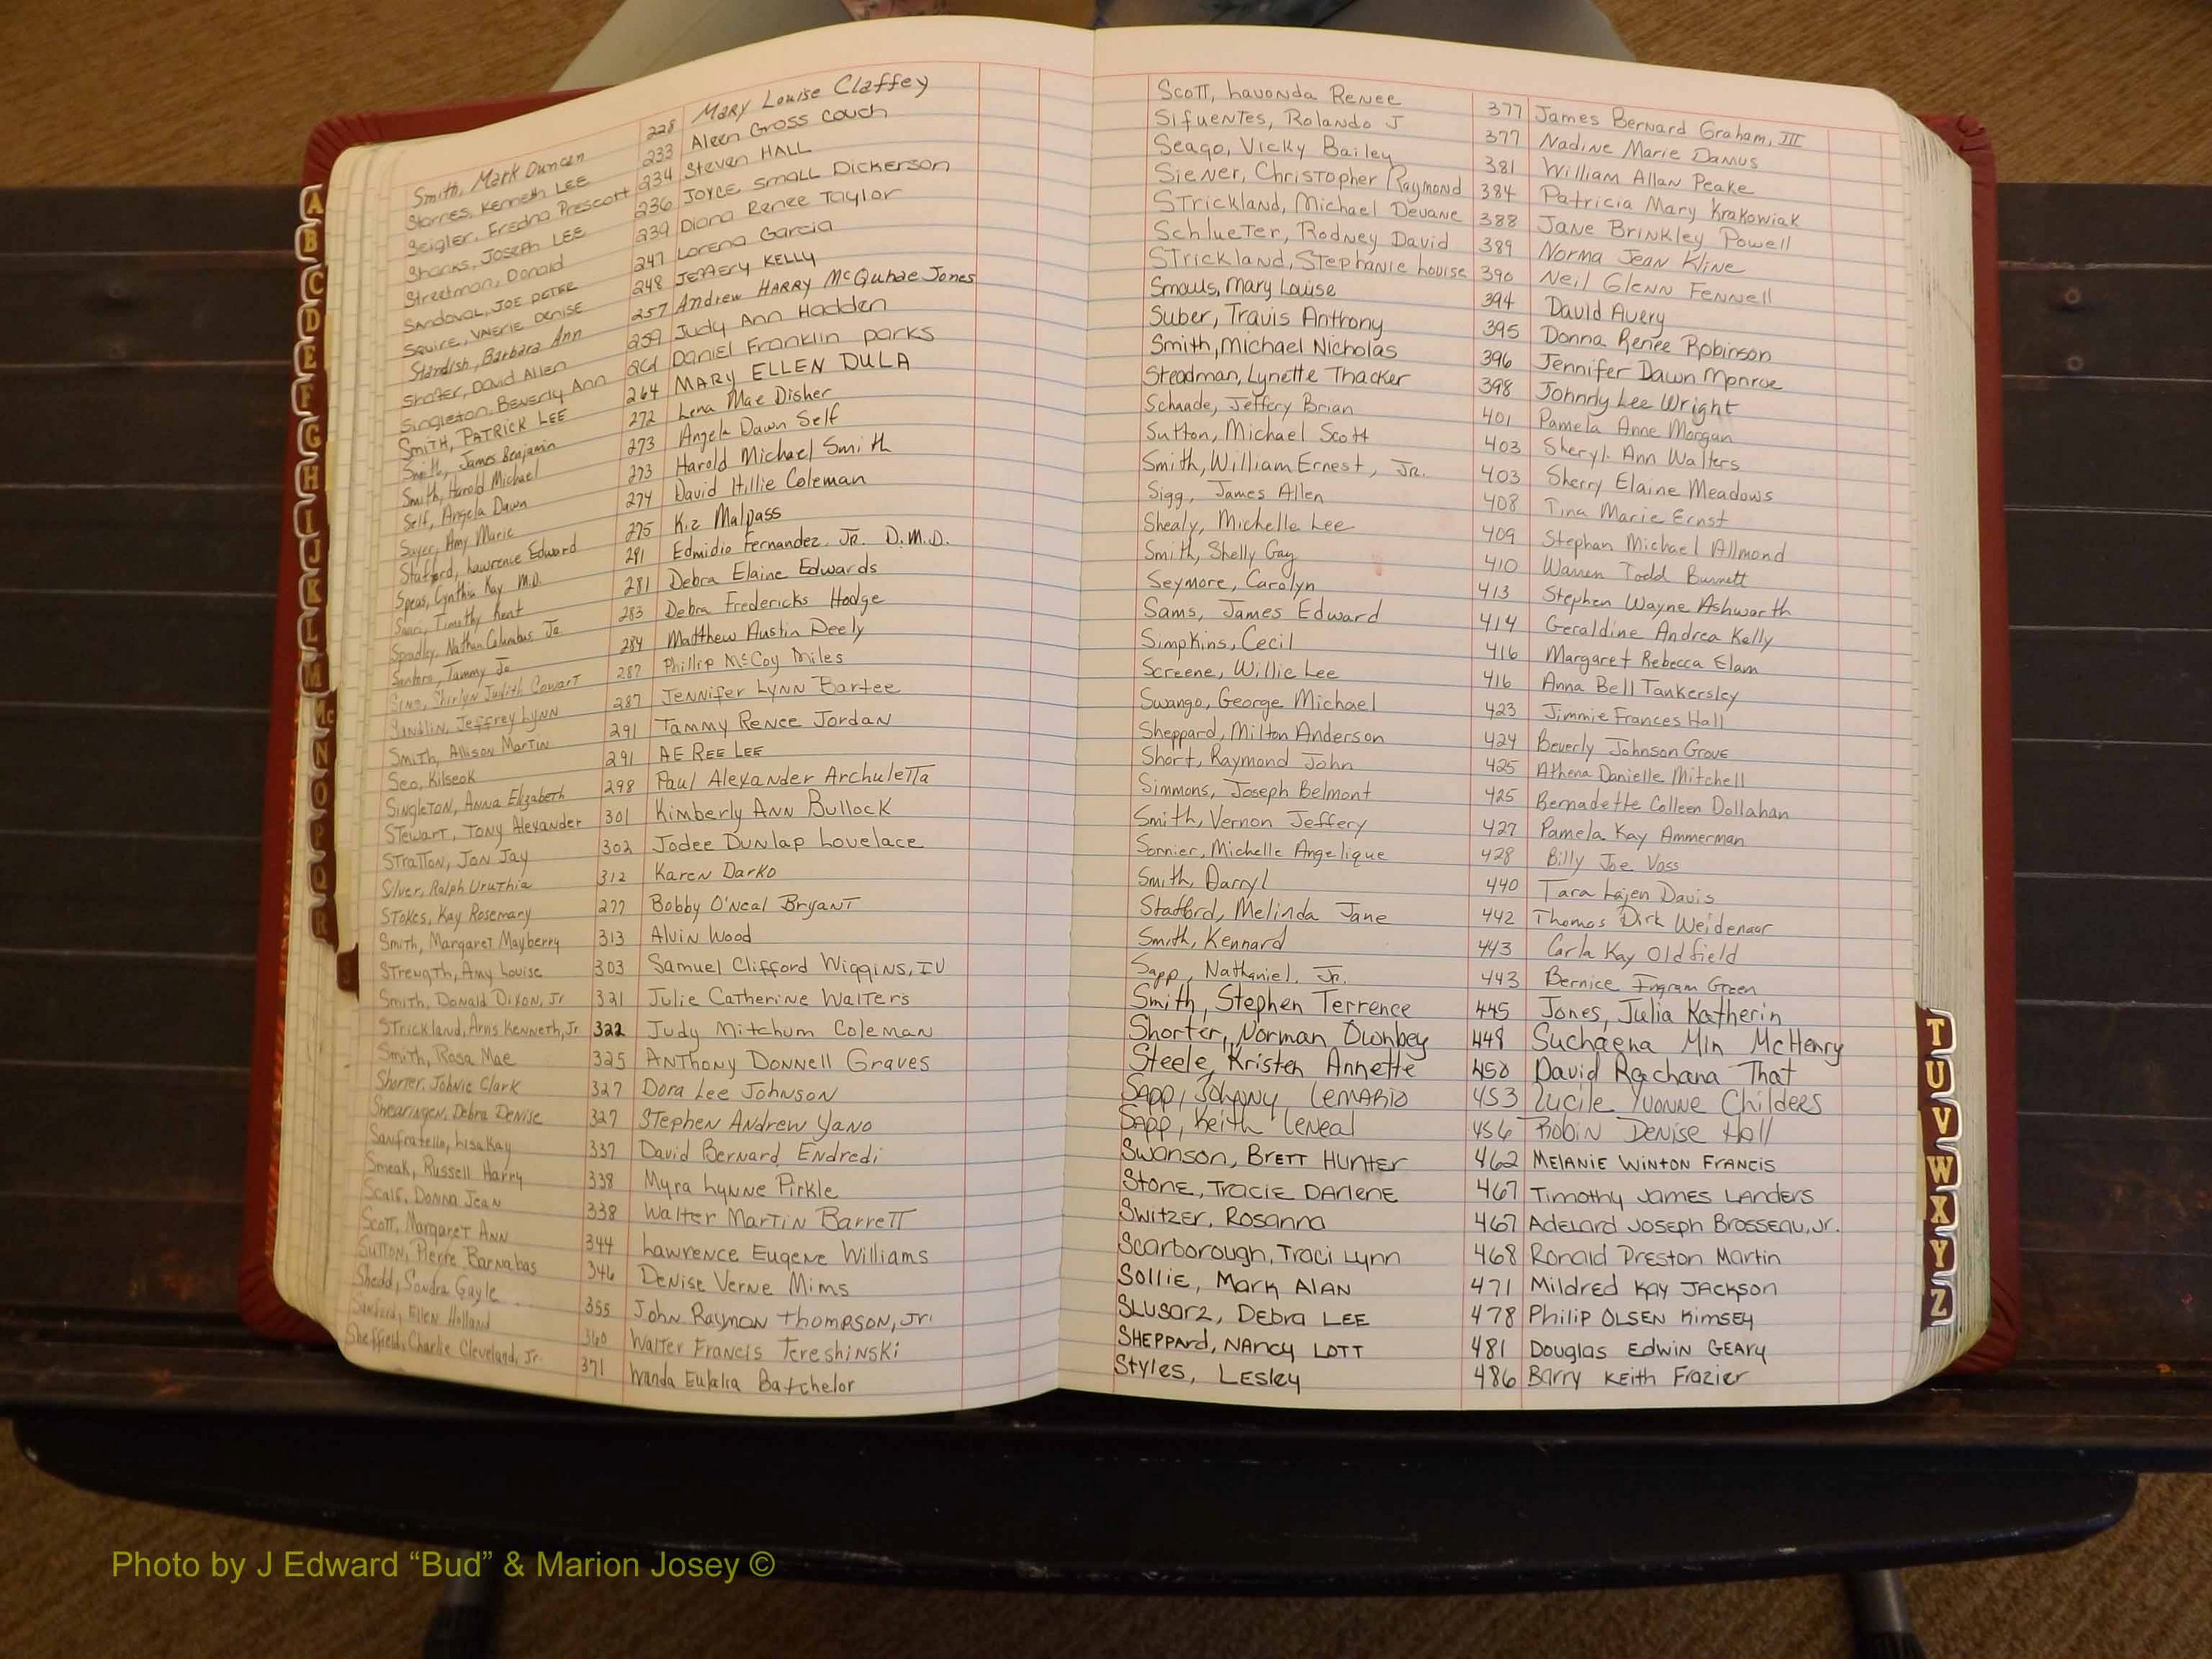 Smith, Mark Duncan 228 Mary Louise Claffey
Starnes, Kenneth Lee 233 Aleen Gross Couch
Seigler, Fredna Prescott 234 Steven HALL
Shanks, Joseph Lee 236 Joyce Small Dickerson
Streetman, Donald 239 Diana Renee Taylor
Sandoval, Joe Peter 247 Lorena Garcia
Squire, Valerie Denise 248 Jeffery Kelly
Standish, Barbara Ann 257 Andrew Harry McQuhae Jones
Shafer, David Allen 259 Judy Ann Hadden
Singleton, Beverly Ann 261 Daniel Franklin Parks
Smith, Patrick Lee 264 MARY ELLEN DULA
Smith, James Benjamin 272 Lena Mae Disher
Smith, Harold Michael 273 Angela Dawn Self
Self, Angela Dawn 273 Harold Michael Smith
Sayer, Amy Marie 274 David Hillie Coleman
Stafford, Lawrence Edward 275 Kiz Malpass
Speas, Cynthia Kay M.D. 281 Edmidio Fernandez, Jr. D.M.D.
Timothy Kent 281 Debra Elaine Edwards
Spradley, Nathan Columbus Jr. 283 Debra Fredericks Hodge
Santoro, Tammy Jo 284 Matthew Austin Deely
Sims, Shirlyn Judith Cowart 287 Phillip McCoy Miles
Jeffrey Lynn 287 Jennifer Lynn Bartee
Smith, Allison Martin 291 Tammy Renee Jordan
Seo, Kilseok 291 AE REE LEE
Singleton, Anna Elizabeth 298 Paul Alexander Archuletta
Stewart, Tony Alexander 301 Kimberly Ann Bullock
Stratton, Jon Jay 302 Jodee Dunlap Lovelace
Silver, Ralph Uruthia 312 Karen Darko
Stokes, Kay Rosemary 277 Bobby O'Neal Bryant
Smith, Margaret Mayberry 313 Alvin Wood
Strength, Amy Louise 303 Samuel Clifford Wiggins, IV
Smith, Donald Dixon, Jr 321 Julie Catherine Walters
Strickland, Arns Kenneth, Jr 322 Judy Mitchum Coleman
Smith, Rosa Mae 325 Anthony Donnell Graves
Shorter, Johnie Clark 327 Dora Lee Johnson
Shearingen, Debra Denise 327 Stephen Andrew Yano
Sanfratello, Lisa Kay 337 David Bernard Endredi
Smeak, Russell Harry 338 Myra Lynne Pirkle
Scalf, Donna Jean 338 Walter Martin Barrett
Scott, Margaret Ann 344 Lawrence Eugene Williams
Sutton, Pierre Barnabas 346 Denise Verne Mims
Shedd, Sondra Gayle 355 John Raymon Thompson, Jr.
Sanford, Ellen Holland 360 Walter Francis Tereshinski
Sheffield, Charlie Cleveland, Jr. 371 Wanda Eulalia Batchelor
Scott, Lavonda Renee 377 James Bernard Graham, III
Sifuentes, Rolando J 377 Nadine Marie Damus
Seago, Vicky Bailey 381 William Allan Peake
Siener, Christopher Raymond 384 Patricia Mary Krakowiak
Strickland, Michael Devane 388 Jane Brinkley Powell
Schlueter, Rodney David 389 Norma Jean Kline
Strickland, Stephanie Louise 390 Neil Glenn Fennell
Smalls, Mary Louise 394 David Avery
Suber, Travis Anthony 395 Donna Renee Robinson
Smith, Michael Nicholas 396 Jennifer Dawn Monroe
Steadman, Lynette Thacker 398 Johndy Lee Wright
Schaade, Jeffery Brian 401 Pamela Anne Morgan
Sutton, Michael Scott 403 Sheryl Ann Walters
Smith, William Ernest, Jr. 403 Sherry Elaine Meadows
Sigg, James Allen 408 Tina Marie Ernst
Shealy, Michelle Lee 409 Stephan Michael Allmond
Smith, Shelly Gay 410 Warren Todd Burnett
Seymore, Carolyn 413 Stephen Wayne Ashworth
Sams, James Edward 414 Geraldine Andrea Kelly
Simpkins, Cecil 416 Margaret Rebecca Elam
Screene, Willie Lee 416 Anna Bell Tankersley
Swango, George Michael 423 Jimmie Frances Hall
Sheppard, Milton Anderson 424 Beverly Johnson Grove
Short, Raymond John 425 Athena Danielle Mitchell
Simmons, Joseph Belmont 425 Bernadette Colleen Dollahan
Smith, Vernon Jeffery 427 Pamela Kay Ammerman
Sonnier, Michelle Angelique 428 Billy Joe Voss
Smith, Darryl 440 Tara Lajen Davis
Stafford, Melinda Jane 442 Thomas Dirk Weidenaar
Smith, Kennard 443 Carla Kay Oldfield
Sapp, Nathaniel, Jr. 443 Bernice Ingram Green
Smith, Stephen Terrence 445 Jones, Julia Katherin
Shorter, Norman Ownbey 448 Suchaena Min McHenry
Steele, Kristen Annette 450 David Rachana That
Sapp, Johnny Lemario 453 Lucile Yvonne Childers
Sapp, Keith Leneal 456 Robin Denise Hall
Swanson, Brett Hunter 462 Melanie Winton Francis
Stone, Tracie Darlene 467 Timothy James Landers
Switzer, Rosanna 467 Adelard Joseph Brosseau, Jr.
Scarborough, Traci Lynn 468 Ronald Preston Martin
Sollie, Mark Alan 471 Mildred Kay Jackson
Slusarz, Debra Lee 478 Philip Olsen Kimsey
Sheppard, Nancy Lott 481 Douglas Edwin Geary
Styles, Lesley 486 Barry Keith Frazier
A
B
C
D
E
F
G
H
I
J
K
L
M
Mc
N
O
P
Q
R
S
T
U
V
W
X
Y
Z
Photo by J Edward “Bud” & Marion Josey ©